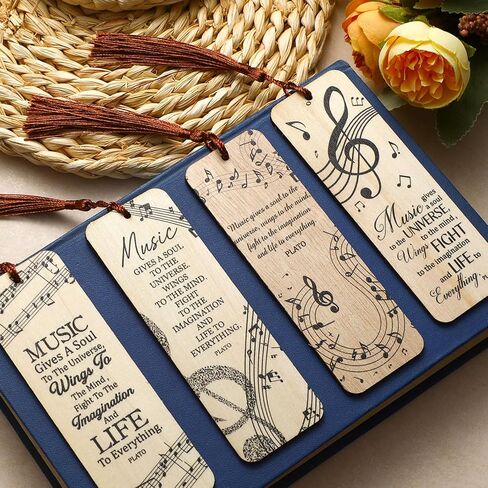 MUSIC
Gives A Soul
To The Universe,
Wings To
The Mind,
Fight To The
Imagination
And
LIFE
To Everything.
PLATO
Music
GIVES A SOUL
TO THE
UNIVERSE.
WINGS
TO THE MIND.
FIGHT TO
THE
IMAGINATION
AND
LIFE TO
EVERYTHING.
PLATO
Music gives a soul to the
universe, wings to the mind,
fight to the imagination
and life to everything.
PLATO
Music gives
a soul
to the UNIVERSE
Wings to the mind,
FIGHT
to the imagination
and LIFE to
Everything.